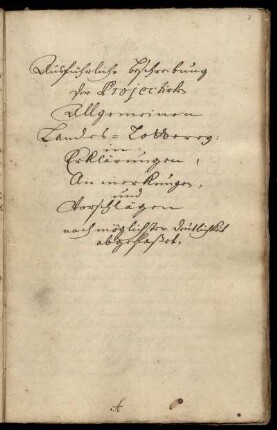 Ausführliche beschreibung
der Projectirten
Allgemeinen
Landes=Lotterey:
in
Erklärungen,
Anmerkungen,
und
Vorschlägen
nach möglichster deutlichkeit
abgefaßet.